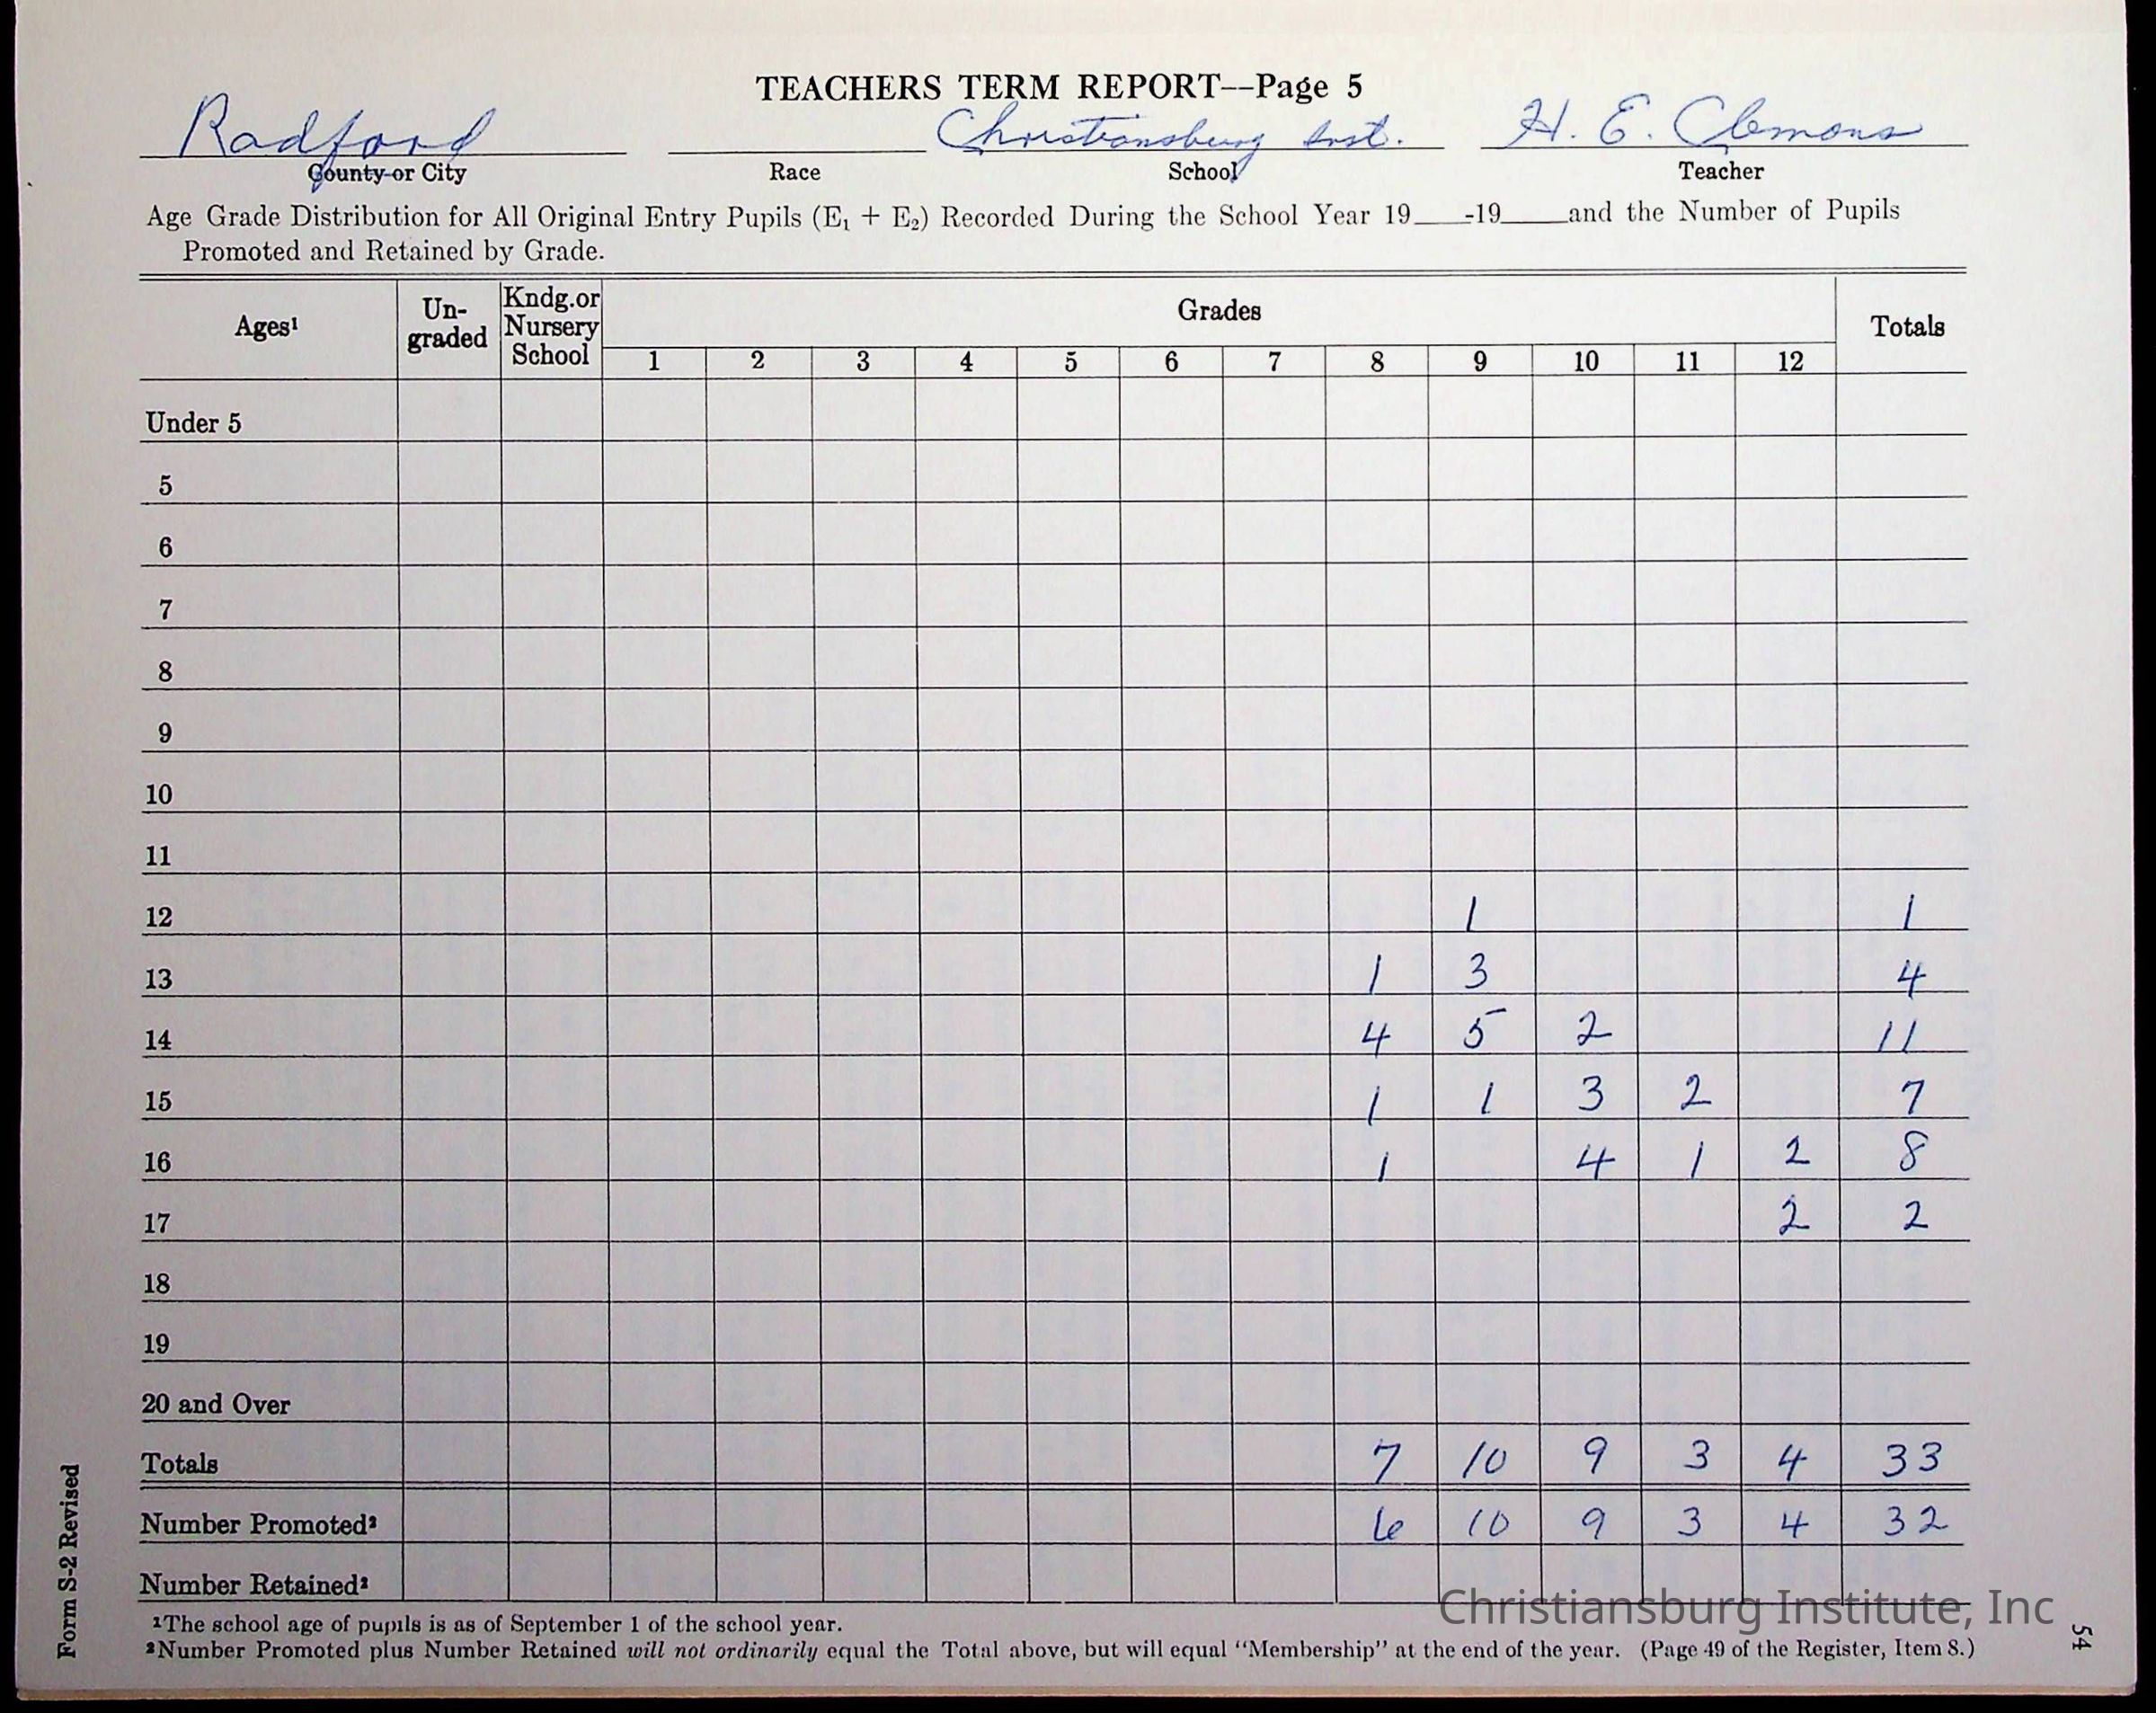 TEACHERS TERM REPORT--Page 5
Radford Christiansburg Inst. H. E. Clemons
County or City Race School Teacher
Age Grade Distribution for All Original Entry Pupils (E₁ + E₂) Recorded During the School Year 19___-19____and the Number of Pupils
Promoted and Retained by Grade.
Ages¹ Un-graded Kndg.or Nursery School Grades Totals
1 2 3 4 5 6 7 8 9 10 11 12
Under 5
5
6
7
8
9
10
11
12 1 1
13 1 3 4
14 4 5 2 11
15 1 1 3 2 7
16 1 4 1 2 8
17 2 2
18
19
20 and Over
Totals 7 10 9 3 4 33
Number Promoted² 6 10 9 3 4 32
Number Retained²
¹The school age of pupils is as of September 1 of the school year.
²Number Promoted plus Number Retained will not ordinarily equal the Total above, but will equal "Membership" at the end of the year. (Page 49 of the Register, Item 8.)
Form S-2 Revised
54
Christiansburg Institute, Inc